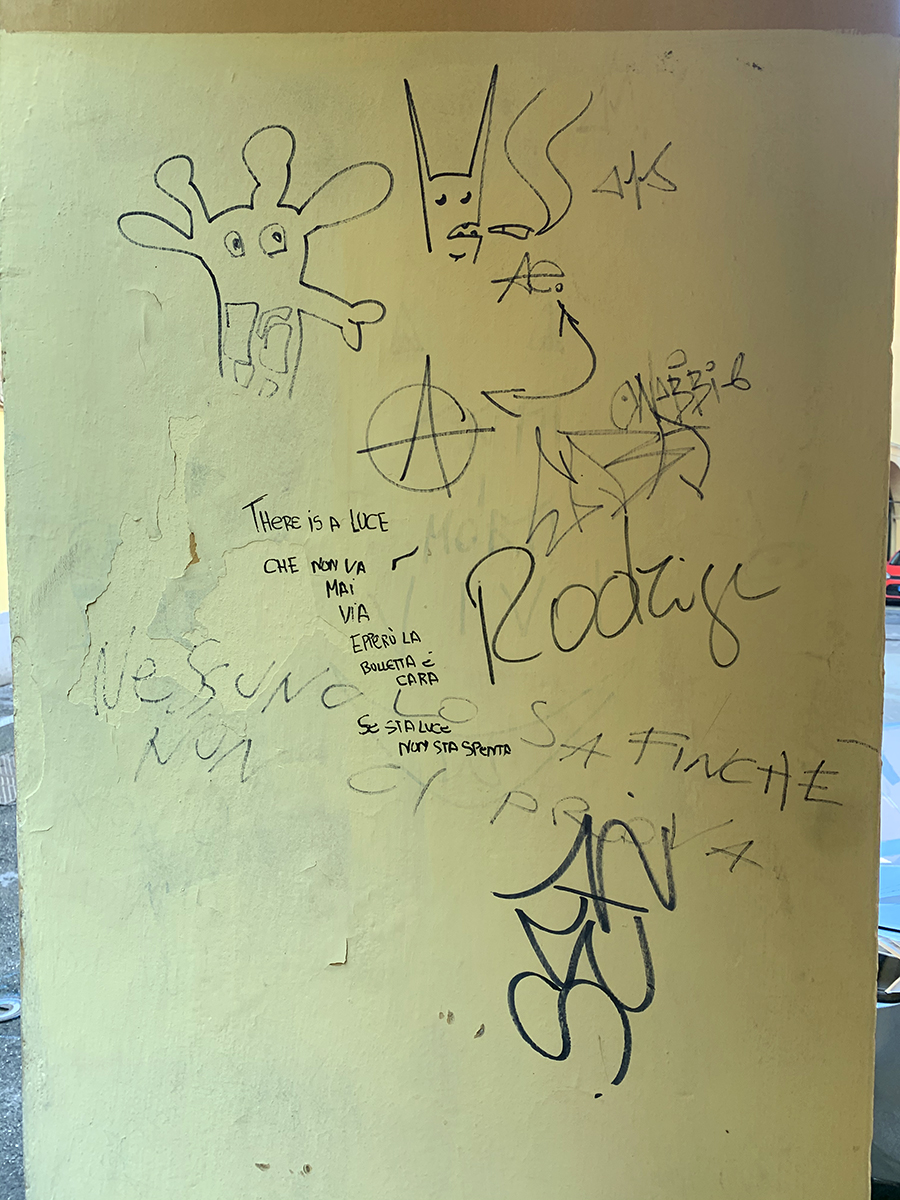 AE.
A
THERE IS A LUCE
CHE NON VA
MAI
VIA
EPPERÒ LA
BOLLETTA È
CARA
SE STA LUCE
NON STA SPENTA
Rodrigo
NESSUNO LO SA FINCHÈ
NON CI PROVA